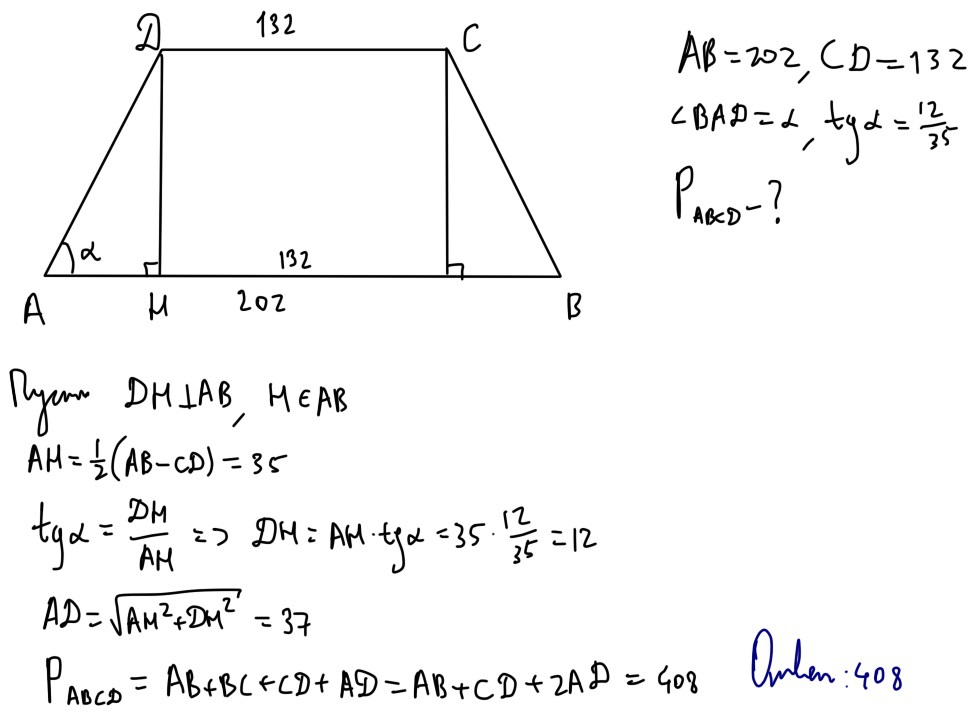 D 132 C
α
132
A H 202 B
AB=202, CD=132
∠BAD=α, tgα=12/35
P_ABCD-?
Пусть DH⊥AB, H∈AB
AH=1/2(AB-CD)=35
tgα=DH/AH => DH=AH·tgα=35·12/35=12
AD=√(AH²+DH²)=37
P_ABCD=AB+BC+CD+AD=AB+CD+2AD=408
Ответ:408